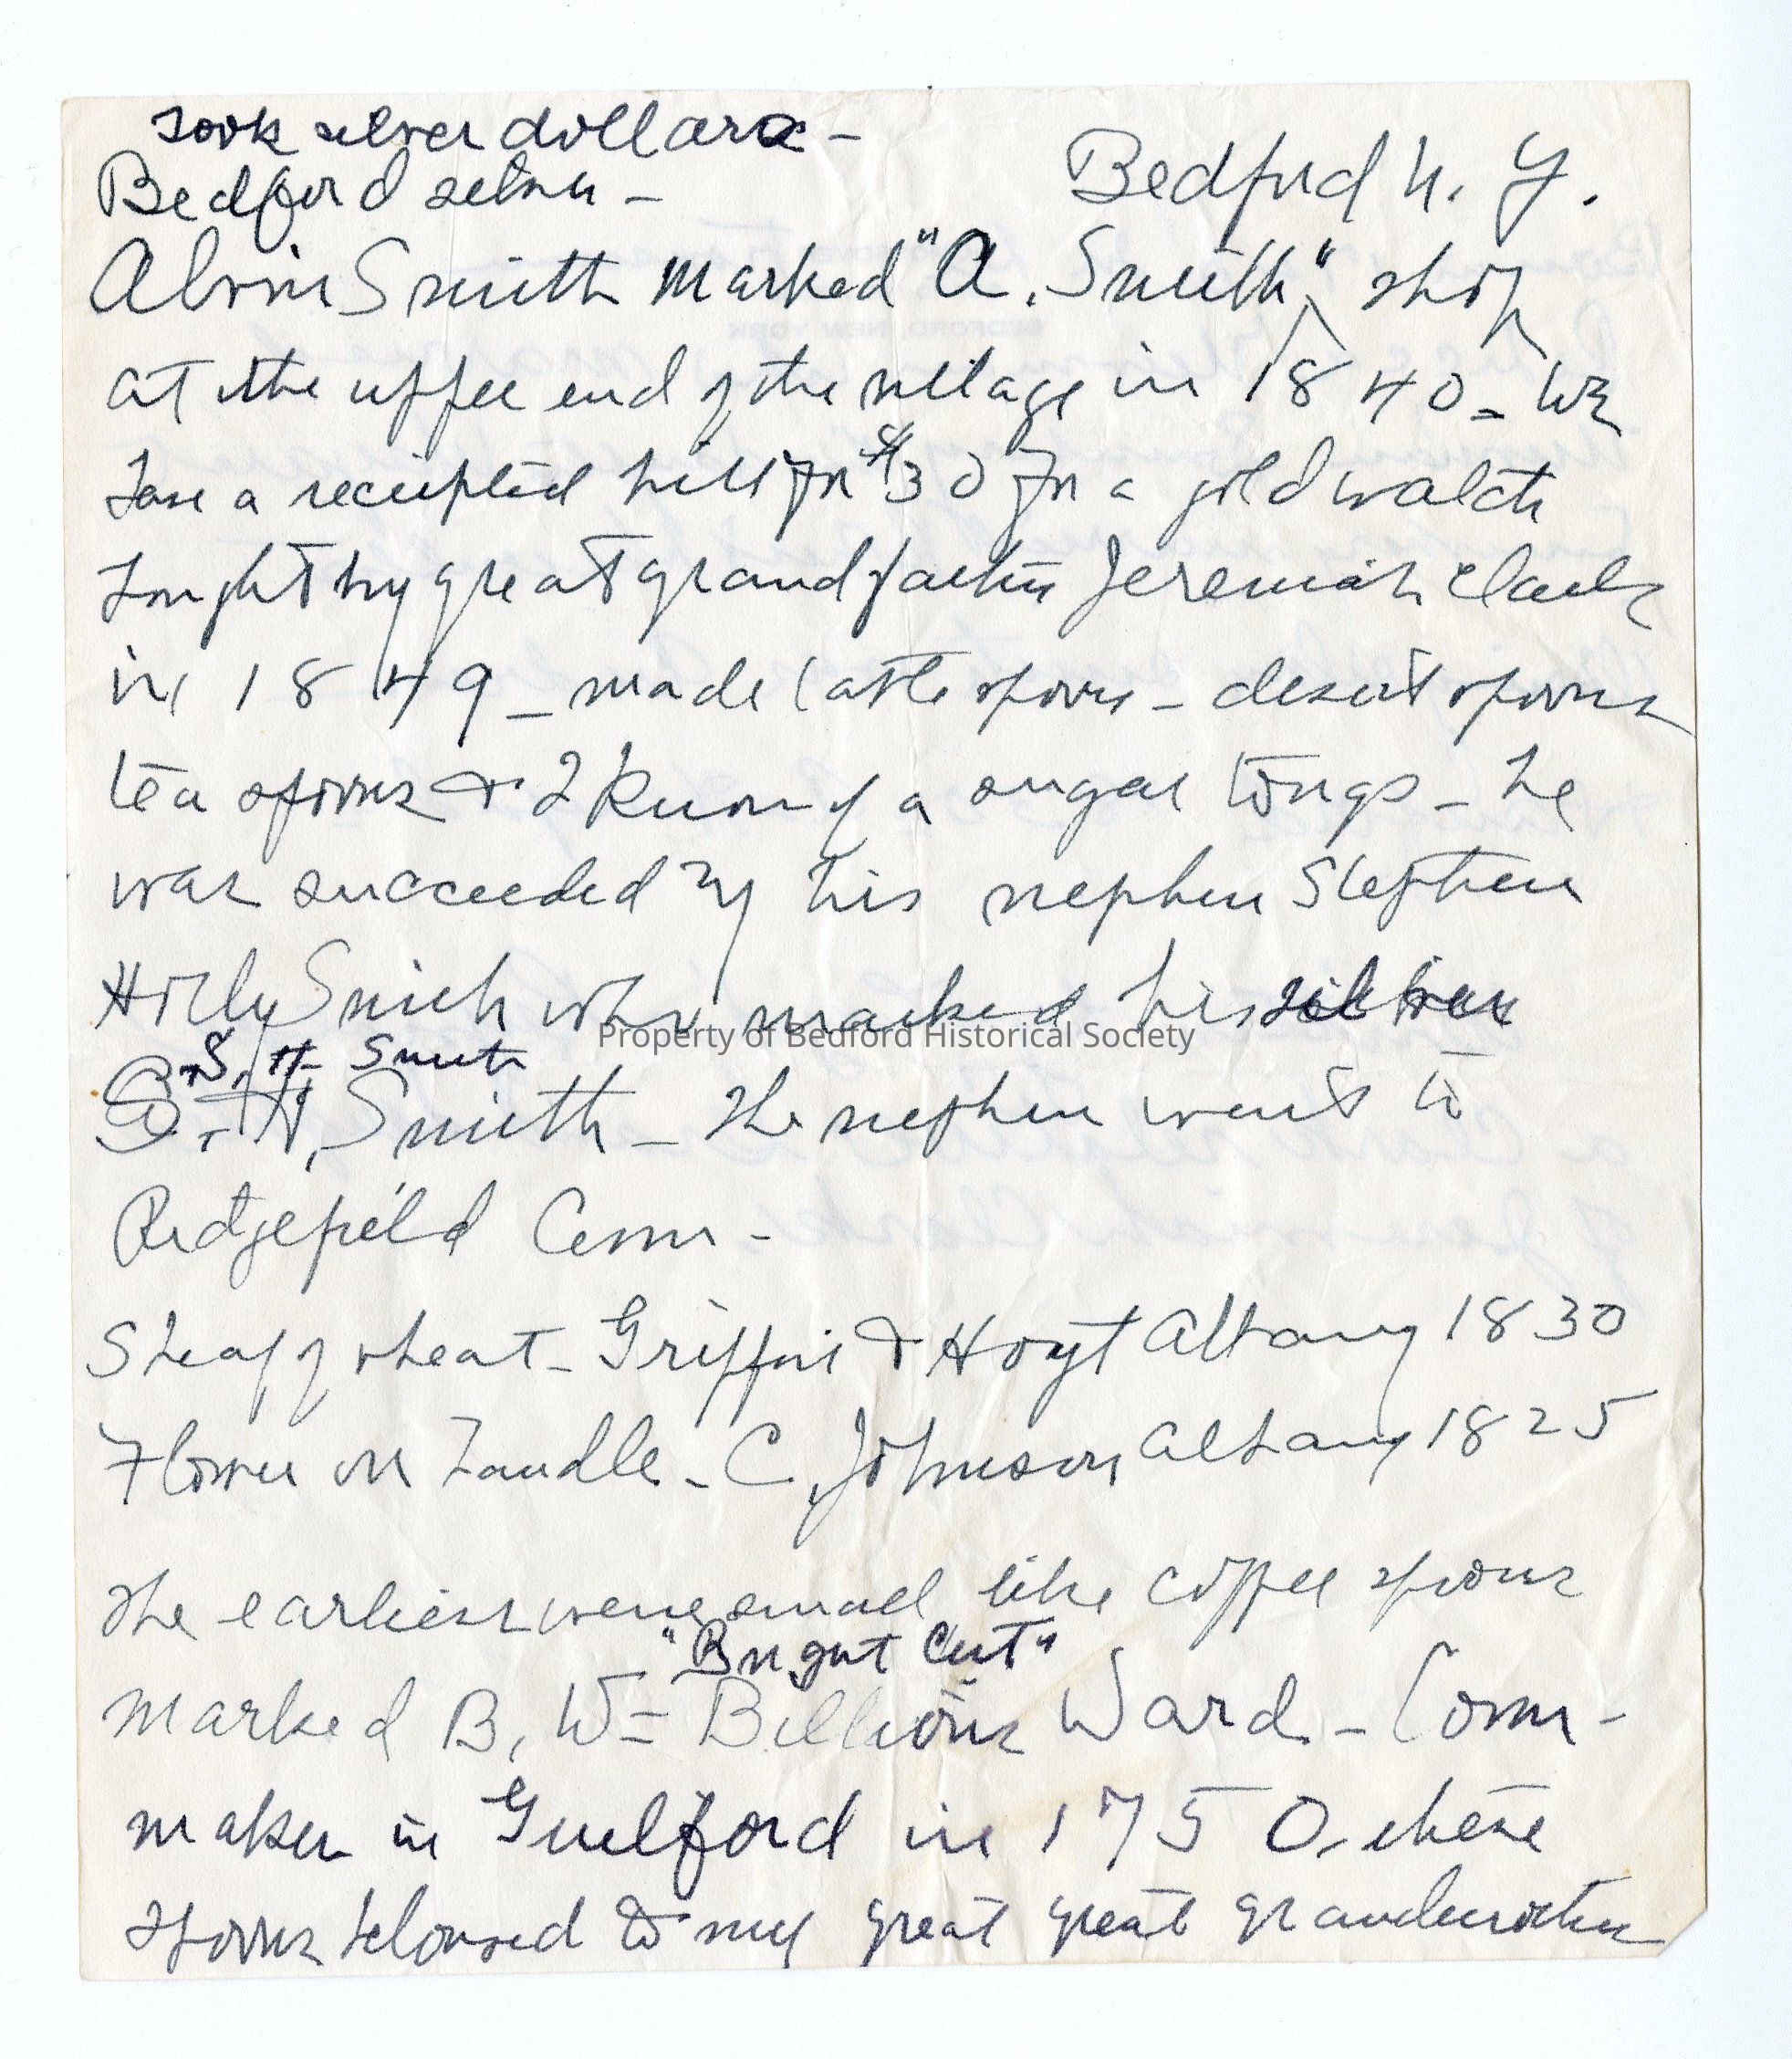 Took silver dollars –
Bedford silver –
Bedford N. Y.
Alvin Smith marked "A. Smith", shop
at the upper end of the village in 1840 – We
have a receipted bill for $30 for a gold watch
bought by great grandfather Jeremiah Clark
in 1849 – made table spoons – desert spoons
tea spoons & I know of a sugar tongs – he
was succeeded by his nephew Stephen
Holly Smith who marked his silver
S. H. Smith
S. H. Smith – The nephew went to
Ridgefield Conn –
Sheaf of wheat – Griffin & Hoyt Albany 1830
Flower on handle – C. Johnson Albany 1825
The earliest were small like coffee spoons
"Bright Cut"
marked B. W = Billious Ward – Conn –
maker in Guilford in 1750, these
spoons belonged to my great great grandmother
Property of Bedford Historical Society